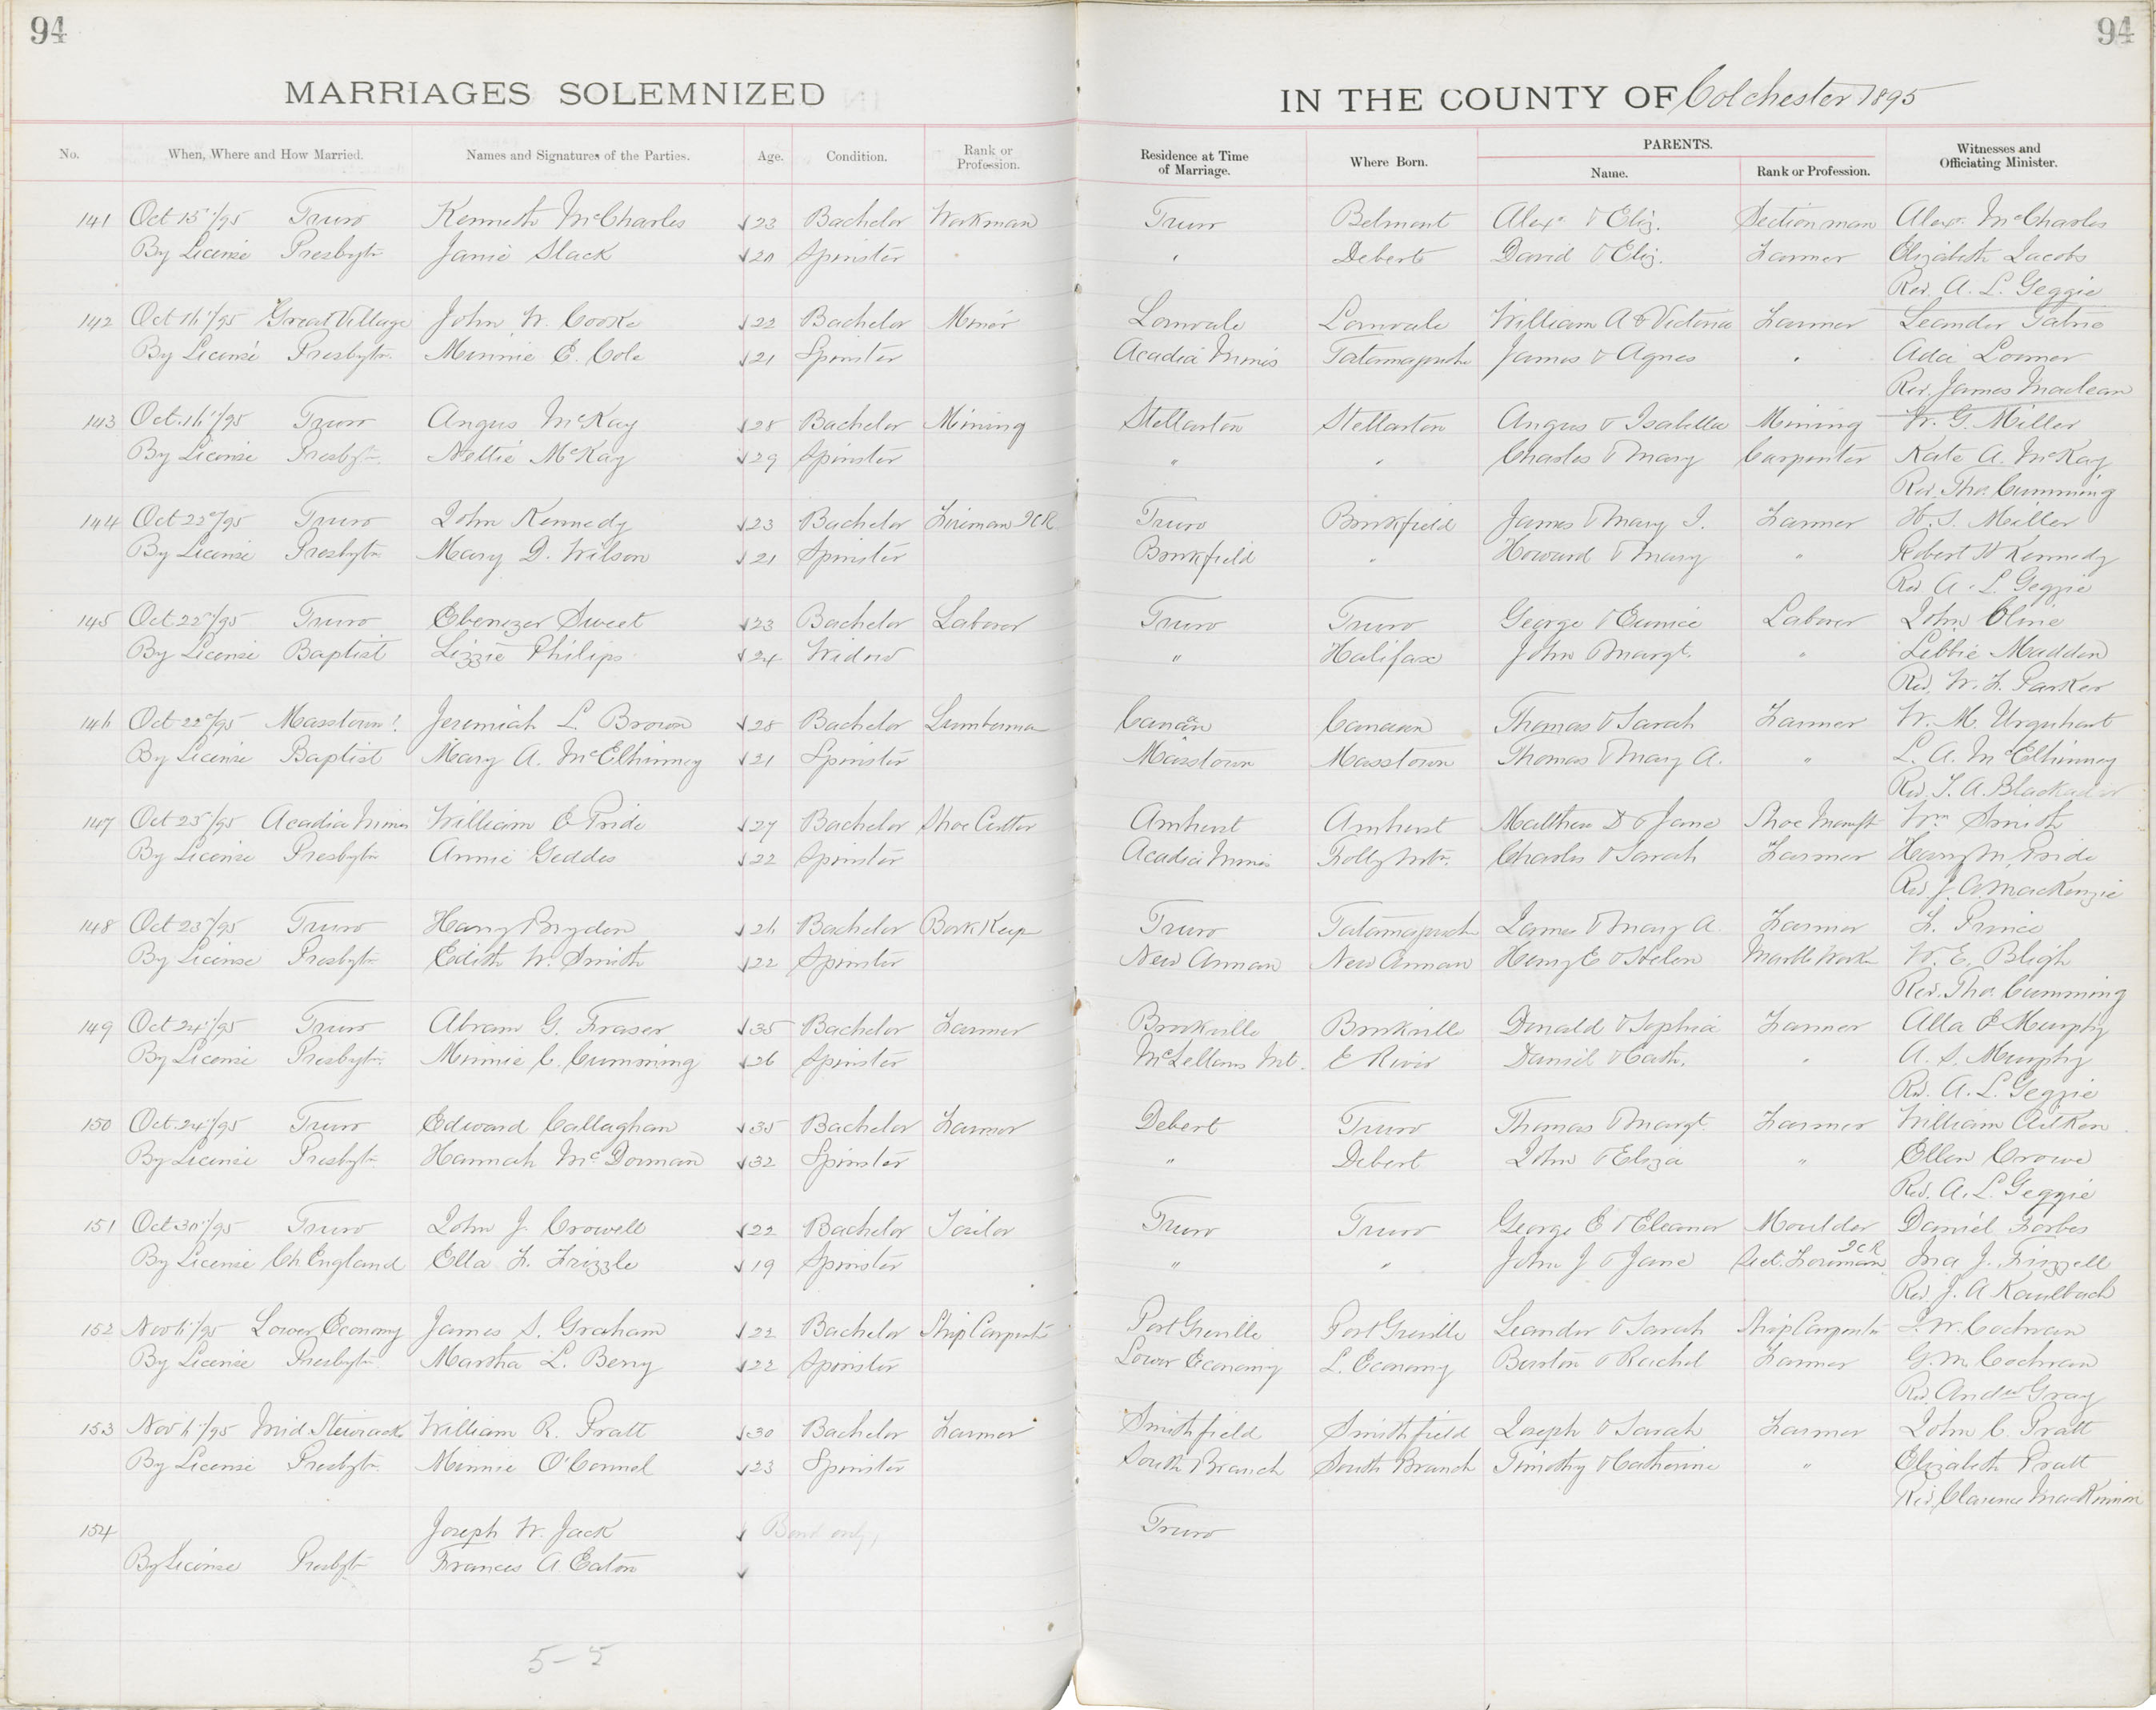 94
94
MARRIAGES SOLEMNIZED
IN THE COUNTY OF Colchester 1895
No. When, Where and How Married. Names and Signatures of the Parties. Age. Condition. Rank or Profession. Residence at Time of Marriage. Where Born. PARENTS. Name. Rank or Profession. Witnesses and Officiating Minister.
141 Oct 15"/95 Truro Kenneth McCharles 23 Bachelor Workman Truro Belmont Alexr. & Eliz. Section man Alexr. McCharles
By License Presbytn Janie Slack 20 Spinster " Debert David & Eliz. Farmer Elizabeth Jacobs
Rev. A. L. Geggie
142 Oct 16"/95 Great Village John W. Cooke 22 Bachelor Miner Lornvale Lornvale William A & Victoria Farmer Leander
By License Presbytn. Minnie E. Cole 21 Spinster Acadia Mines Tatamagouche James & Agnes " Ada Lormer
Rev. James Maclean
143 Oct. 16"/95 Truro Angus McKay 28 Bachelor Mining Stellarton Stellarton Angus & Isabella Mining W. G. Miller
By License Presbytn. Nettie McKay 29 Spinster " " Charles & Mary Carpenter Kate A. McKay
Rev. Thos. Cumming
144 Oct 22"/95 Truro John Kennedy 23 Bachelor Fireman ICR. Truro Brookfield James & Mary J. Farmer H. S. Miller
By License Presbytn Mary D. Wilson 21 Spinster Brookfield " Howard & Mary " Robert W Kennedy
Rev A. L. Geggie
145 Oct 22"/95 Truro Ebenezer Sweet 23 Bachelor Laborer Truro Truro George & Eunice Laborer John Cline
By License Baptist Lizzie Philips 24 Widow " Halifax John & Margt. " Libbie Madden
Rev. W. F. Parker
146 Oct 22"/95 Masstown Jeremiah L. Brown 28 Bachelor Lumberman Canaan Canaan Thomas & Sarah Farmer W. M. Urquhart
By License Baptist Mary A. McElhinney 21 Spinster Masstown Masstown Thomas & Mary A. " L. A. McElhinney
Rev. T. A. Blackadar
147 Oct 23"/95 Acadia Mines William E Pride 27 Bachelor Shoe Cutter Amherst Amherst Matthew D & Jane Shoe Manuft Wm Smith
By License Presbytn Annie Geddes 22 Spinster Acadia Mines Folly Mtn. Charles & Sarah Farmer Harry M. Pride
Rev J. A. MacKenzie
148 Oct 23"/95 Truro Harry Bryden 26 Bachelor Book Keep Truro Tatamagouch James & Mary A. Farmer F. Prince
By License Presbytn Edith W. Smith 22 Spinster New Annan New Annan Henry E & Helen Marble Work W. E. Bligh
Rev. Thos. Cumming
149 Oct 24"/95 Truro Abram G. Fraser 35 Bachelor Farmer Brookville Brookville Donald & Sophia Farmer Alla E Murphy
By License Presbytn. Minnie C. Cumming 26 Spinster McLellans Mt. E River Daniel & Cath. " A. S. Murphy
Rev. A. L. Geggie
150 Oct. 24"/95 Truro Edward Callaghan 35 Bachelor Farmer Debert Truro Thomas & Margt. Farmer William Aitken
By License Presbytn Hannah McDorman 32 Spinster " Debert John & Eliza " Ellen Crowe
Rev. A. L. Geggie
151 Oct 30"/95 Truro John J. Crowell 22 Bachelor Tailor Truro Truro George E & Eleanor Moulder Daniel Forbes
By License Ch England Ella F. Frizzle 19 Spinster " " John J & Jane Sect. Foreman ICR Ina J. Frizzell
Rev. J. A Kaulbach
152 Nov 6"/95 Lower Economy James S. Graham 22 Bachelor Ship Carpent Port Greville Port Greville Leander & Sarah Ship Carpenter W. Cochran
By License Presbytn Martha L. Berry 22 Spinster Lower Economy L. Economy Burton & Rachel Farmer G. M. Cochran
Rev. Andw Gray
153 Nov 6"/95 Mid. Stewiacke William R. Pratt 30 Bachelor Farmer Smithfield Smithfield Joseph & Sarah Farmer John C. Pratt
By License Presbytn. Minnie O'Connel 23 Spinster South Branch South Branch Timothy & Catherine " Elizabeth Pratt
Rev. Clarence MacKinnon
154 Joseph W. Jack Bond only, Truro
By License Presbytn Frances A. Eaton
5-5